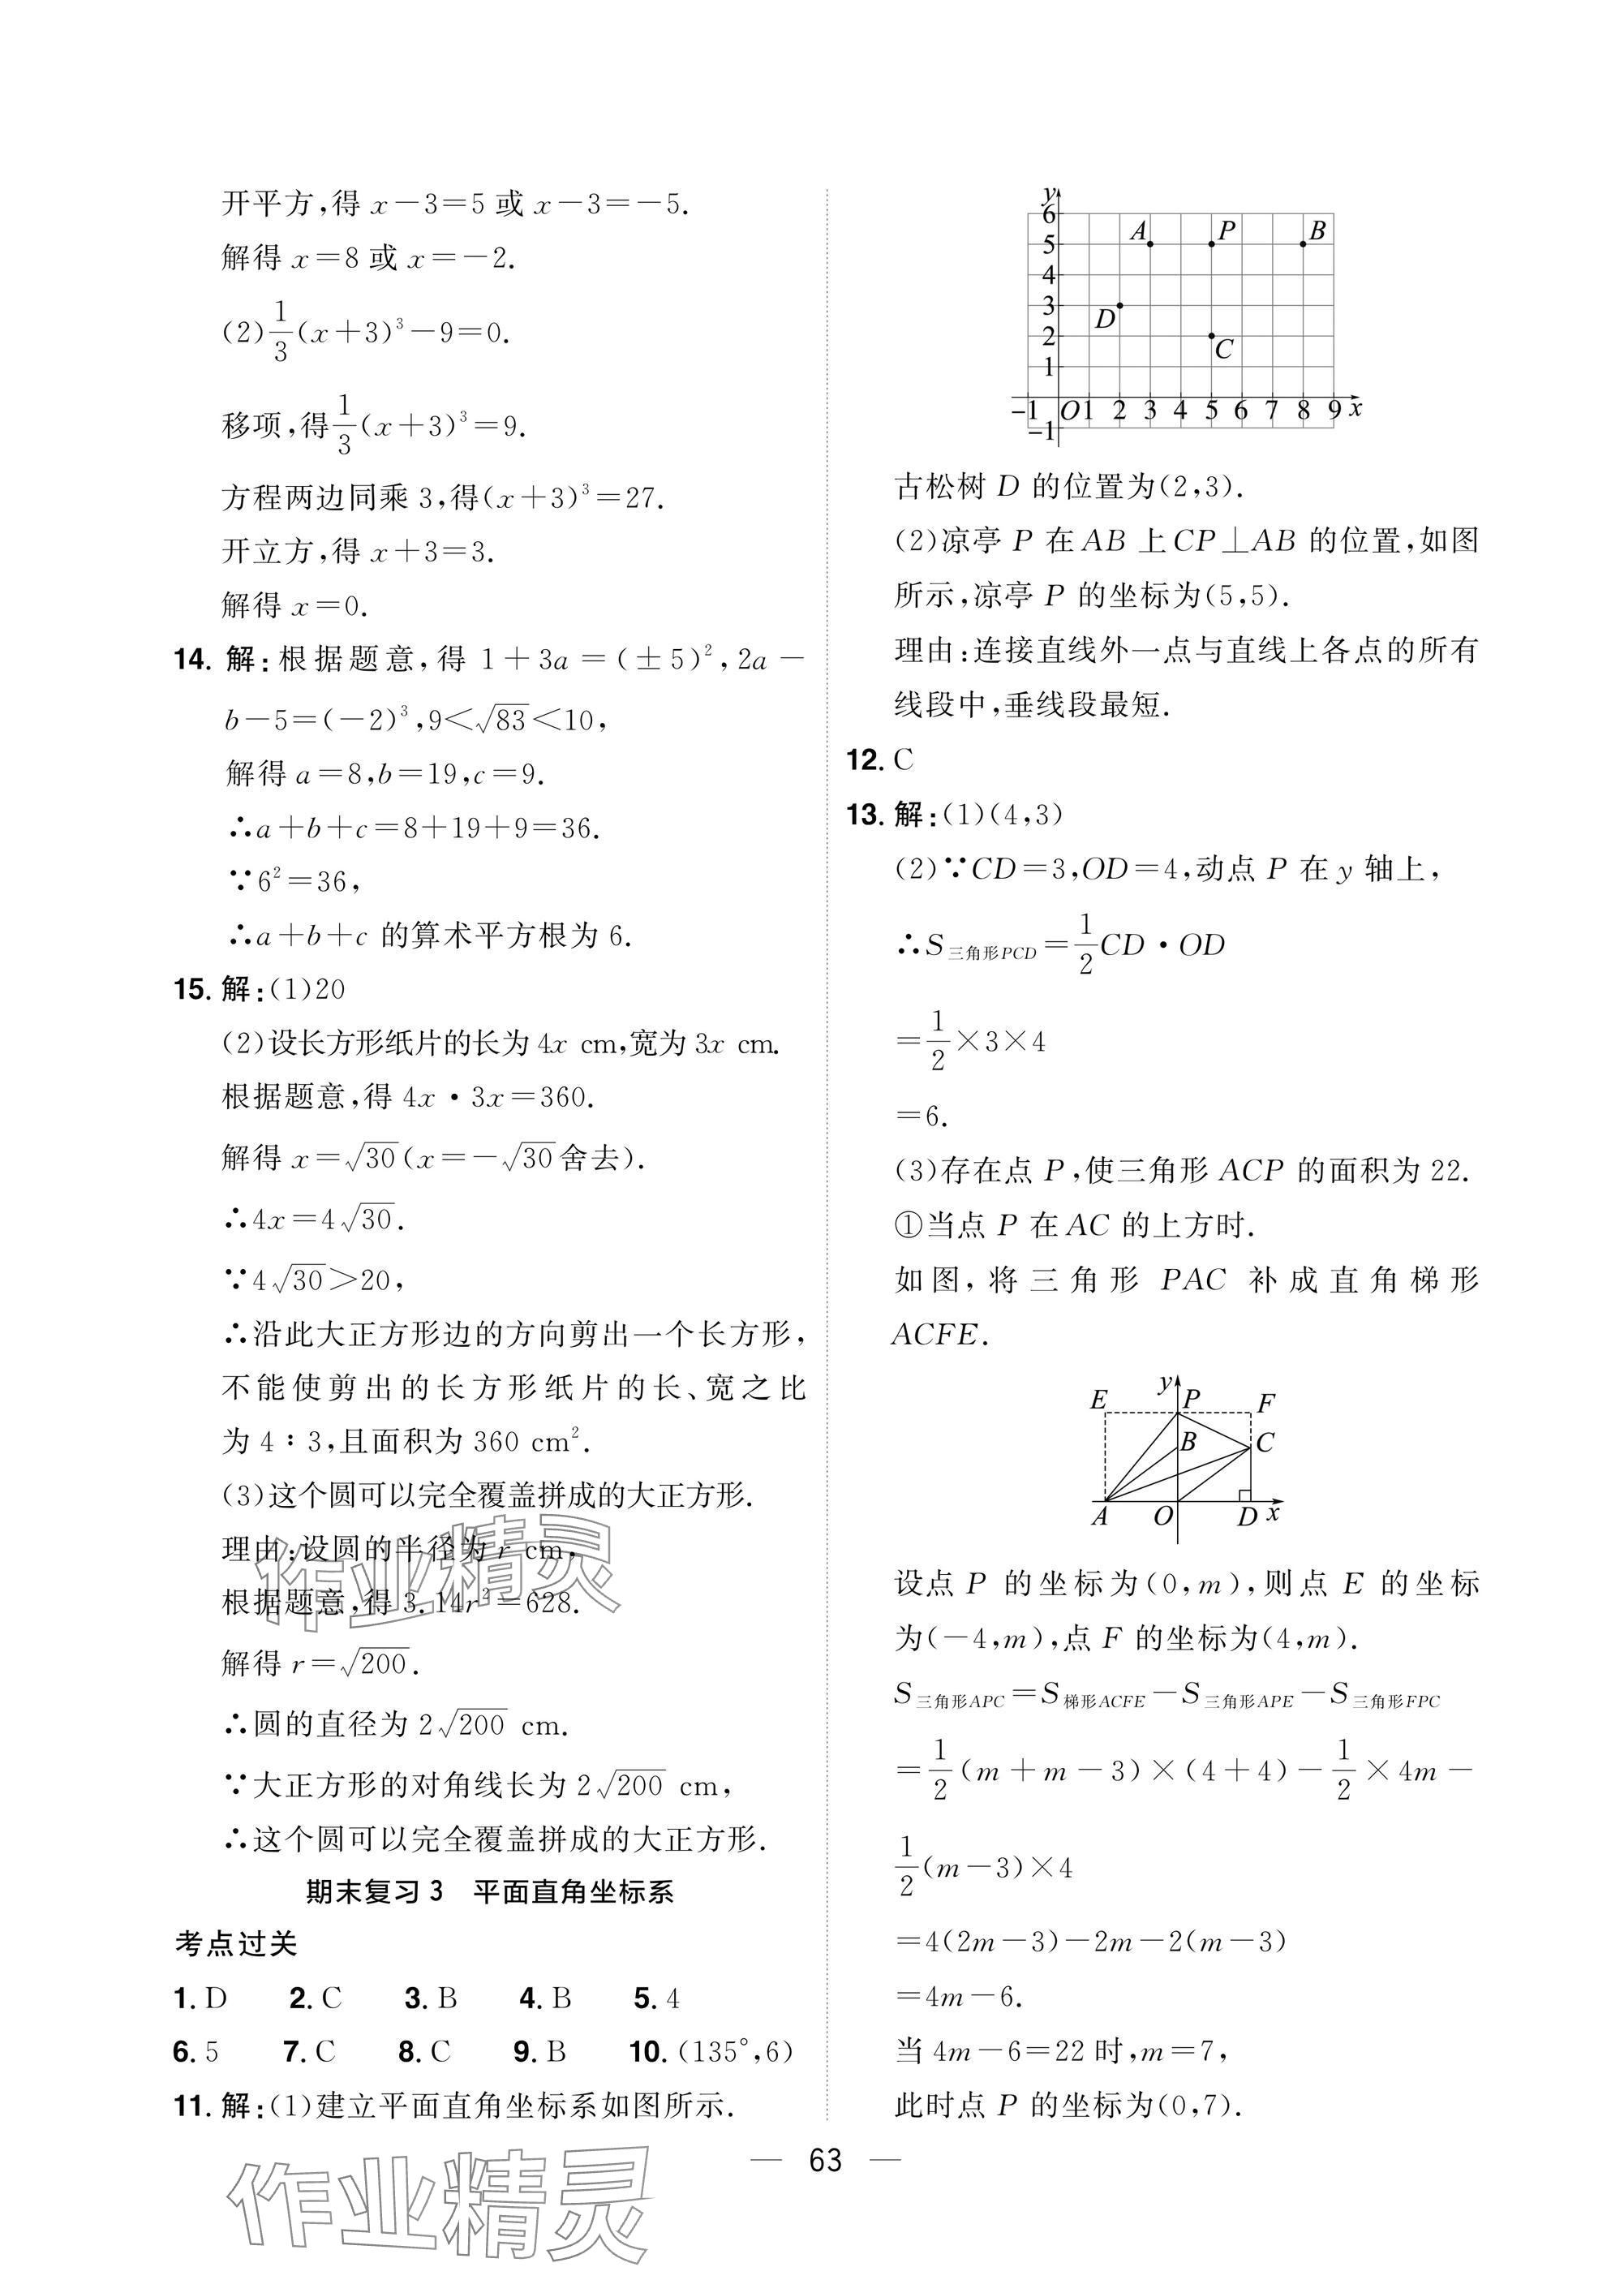 开平方,得 x-3=5 或 x-3=-5.
解得 x=8 或 x=-2.
(2)1/3(x+3)³-9=0.
移项,得1/3(x+3)³=9.
方程两边同乘 3,得(x+3)³=27.
开立方,得 x+3=3.
解得 x=0.
14. 解:根据题意,得 1+3a=(±5)²,2a-
b-5=(-2)³,9<√83<10,
解得 a=8,b=19,c=9.
∴a+b+c=8+19+9=36.
∵6²=36,
∴a+b+c 的算术平方根为 6.
15. 解:(1)20
(2)设长方形纸片的长为 4x cm,宽为 3x cm.
根据题意,得 4x·3x=360.
解得 x=√30(x=-√30舍去).
∴4x=4√30.
∵4√30>20,
∴沿此大正方形边的方向剪出一个长方形,
不能使剪出的长方形纸片的长、宽之比
为 4∶3,且面积为 360 cm².
(3)这个圆可以完全覆盖拼成的大正方形.
理由:设圆的半径为 r cm,
根据题意,得 3.14r²=628.
解得 r=√200.
∴圆的直径为 2√200 cm.
∵大正方形的对角线长为 2√200 cm,
∴这个圆可以完全覆盖拼成的大正方形.
期末复习 3 平面直角坐标系
考点过关
1. D 2. C 3. B 4. B 5. 4
6. 5 7. C 8. C 9. B 10. (135°,6)
11. 解:(1)建立平面直角坐标系如图所示.
y
6
A P B
5
4
3
D
2
C
1
-1 O 1 2 3 4 5 6 7 8 9 x
-1
古松树 D 的位置为(2,3).
(2)凉亭 P 在 AB 上 CP⊥AB 的位置,如图
所示,凉亭 P 的坐标为(5,5).
理由:连接直线外一点与直线上各点的所有
线段中,垂线段最短.
12. C
13. 解:(1)(4,3)
(2)∵CD=3,OD=4,动点 P 在 y 轴上,
∴S三角形PCD=1/2CD·OD
=1/2×3×4
=6.
(3)存在点 P,使三角形 ACP 的面积为 22.
①当点 P 在 AC 的上方时.
如图,将三角形 PAC 补成直角梯形
ACFE.
y
E P F
B C
A O D x
设点 P 的坐标为(0,m),则点 E 的坐标
为(-4,m),点 F 的坐标为(4,m).
S三角形APC=S梯形ACFE-S三角形APE-S三角形FPC
=1/2(m+m-3)×(4+4)-1/2×4m-
1/2(m-3)×4
=4(2m-3)-2m-2(m-3)
=4m-6.
当 4m-6=22 时,m=7,
此时点 P 的坐标为(0,7).
— 63 —
作业精灵
作业精灵